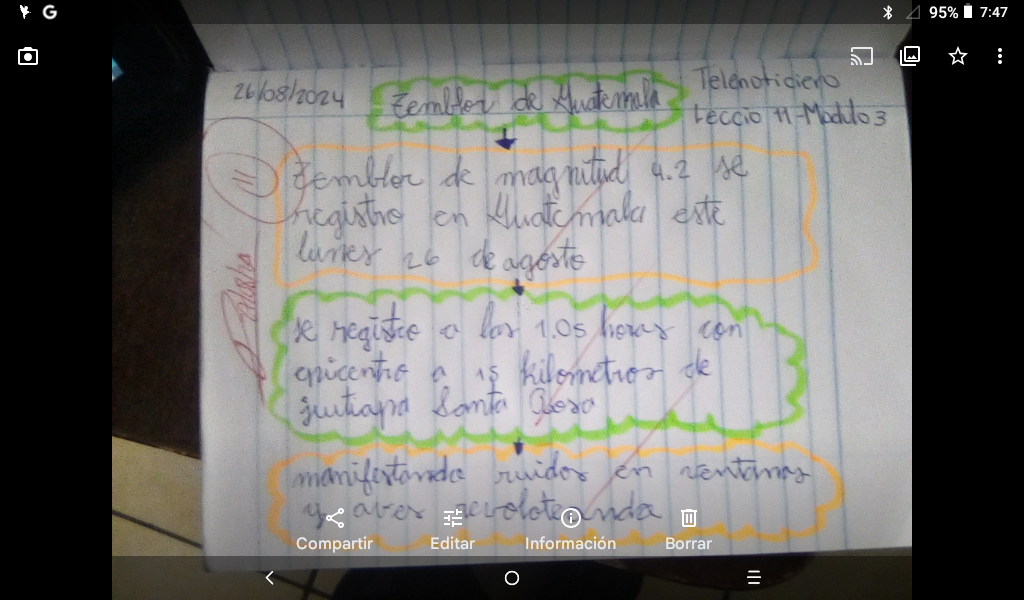 G
95% 7:47
26/08/2024
Temblor de Guatemala
Telenoticiero
Leccio 11-Modulo 3
Temblor de magnitud 4.2 se
registro en Guatemala este
lunes 26 de agosto
se registro a las 1.05 horas con
epicentro a 15 kilometros de
jutiapa Santa Rosa
manifestanda ruidos en ventanas
y aves revoloteanda
Compartir Editar Información Borrar